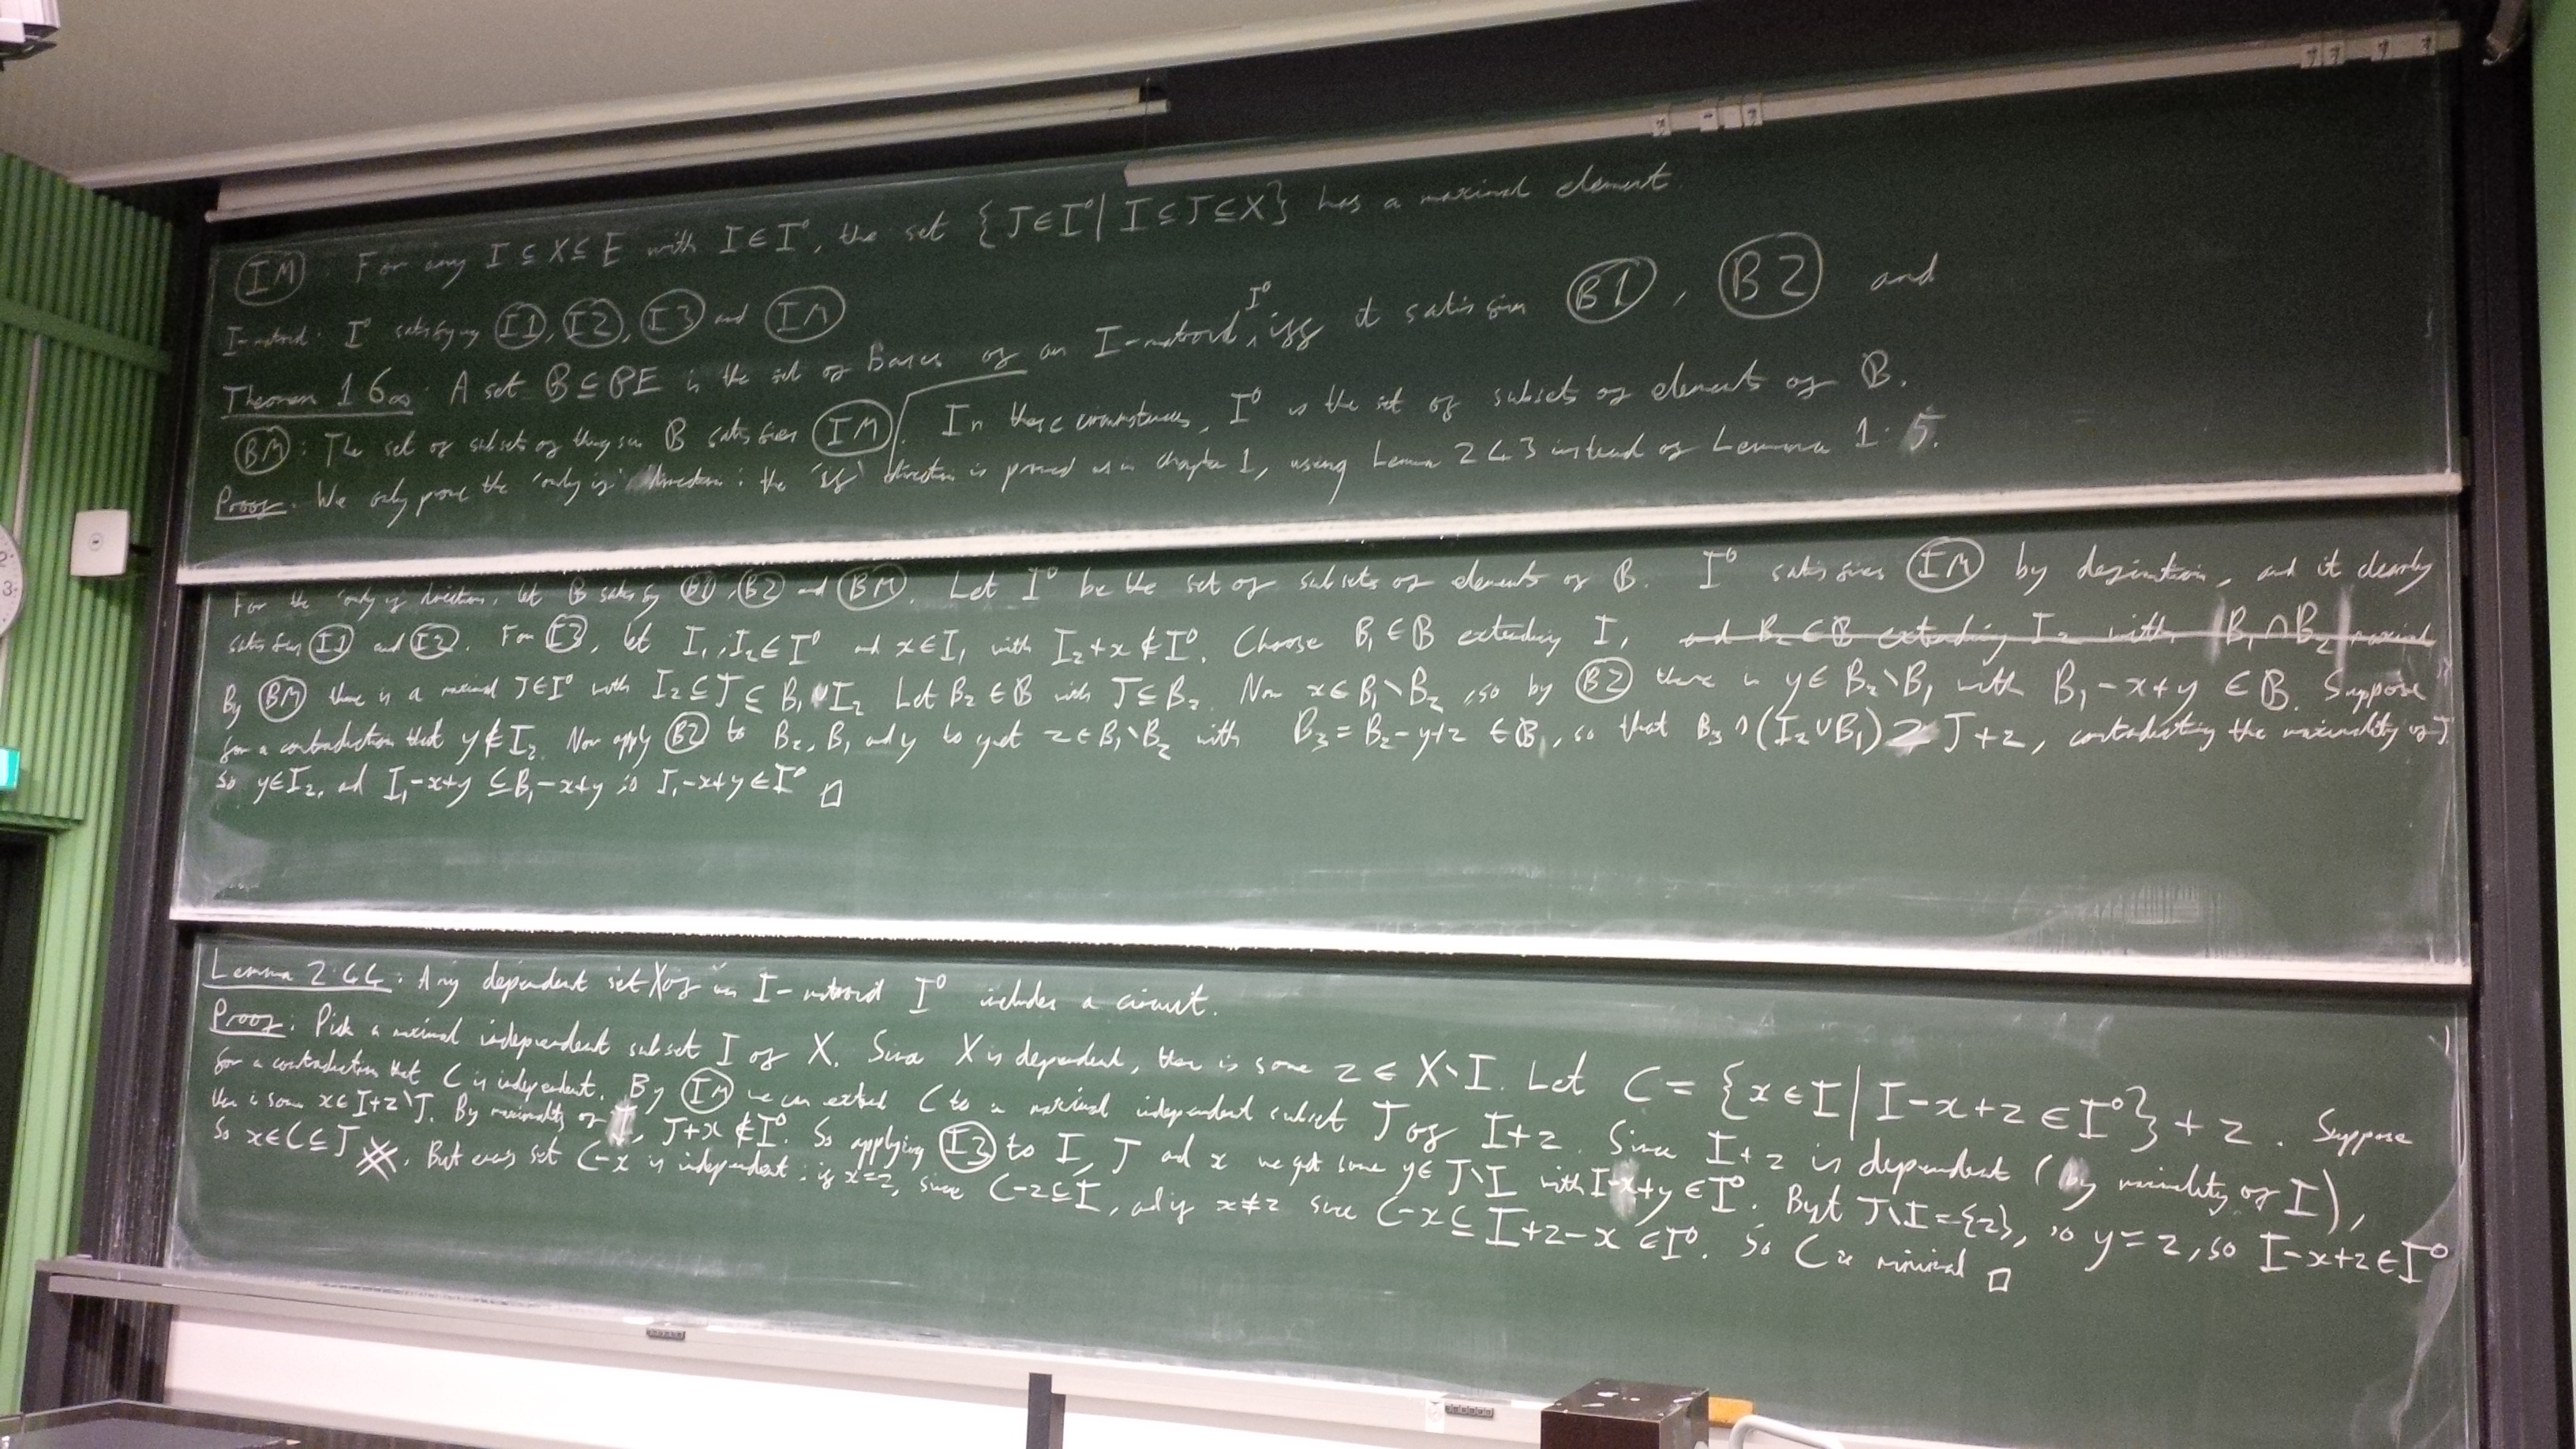 (IM): For any I ⊆ X ⊆ E with I ∈ I°, the set {J ∈ I° | I ⊆ J ⊆ X} has a maximal element.
I-matroid: I° satisfying (I1), (I2), (I3) and (IM)
Theorem 1 6∞: A set B ⊆ PE is the set of Bases of an I-matroid I°, iff it satisfies (B1), (B2) and
(BM): The set of subsets of things in B satisfies (IM). In these circumstances, I° is the set of subsets of elements of B.
Proof: We only prove the 'only if' direction: the 'if' direction is proved as in chapter 1, using Lemma 2 G 3 instead of Lemma 1.5.
For the 'only if' direction, let B satisfy (B1), (B2) and (BM). Let I° be the set of subsets of elements of B. I° satisfies (IM) by definition, and it clearly
satisfies (I1) and (I2). For (I3), let I₁, I₂ ∈ I° and x ∈ I₁ with I₂+x ∉ I°. Choose B₁ ∈ B extending I₁ and B₂ ∈ B extending I₂ with |B₁∩B₂| maximal
By (BM) there is a maximal J ∈ I° with I₂ ⊆ J ⊆ B₁ ∪ I₂ Let B₂ ∈ B with J ⊆ B₂. Now x ∈ B₁\B₂, so by (B2) there is y ∈ B₂\B₁ with B₁-x+y ∈ B. Suppose
for a contradiction that y ∉ I₂. Now apply (B2) to B₂, B₁ and y to get z ∈ B₁\B₂ with B₃ = B₂-y+z ∈ B, so that B₃ ∩ (I₂ ∪ B₁) ⊇ J+z, contradicting the maximality of J.
So y ∈ I₂, and I₁-x+y ⊆ B₁-x+y so I₁-x+y ∈ I° □
Lemma 2 G 4: Any dependent set X of an I-matroid I° includes a circuit.
Proof: Pick a maximal independent subset I of X. Since X is dependent, there is some z ∈ X\I. Let C = {x ∈ I | I-x+z ∈ I°} + z. Suppose
for a contradiction that C is independent. By (IM) we can extend C to a maximal independent subset J of I+z. Since I+z is dependent (by maximality of I),
there is some x ∈ I+z\J. By maximality of J, J+x ∉ I°. So applying (I3) to I, J and x we get some y ∈ J\I with I-x+y ∈ I°. Byt J\I = {z}, so y = z, so I-x+z ∈ I°
So x ∈ C ⊆ J ※. But every set C-x is independent: if x=z, since C-z ⊆ I, and if x≠z since C-x ⊆ I+z-x ∈ I°. So C is minimal □